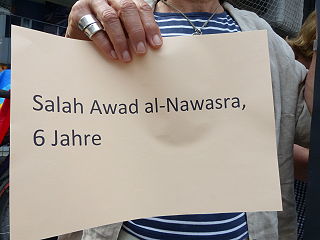 Salah Awad al-Nawasra,
6 Jahre